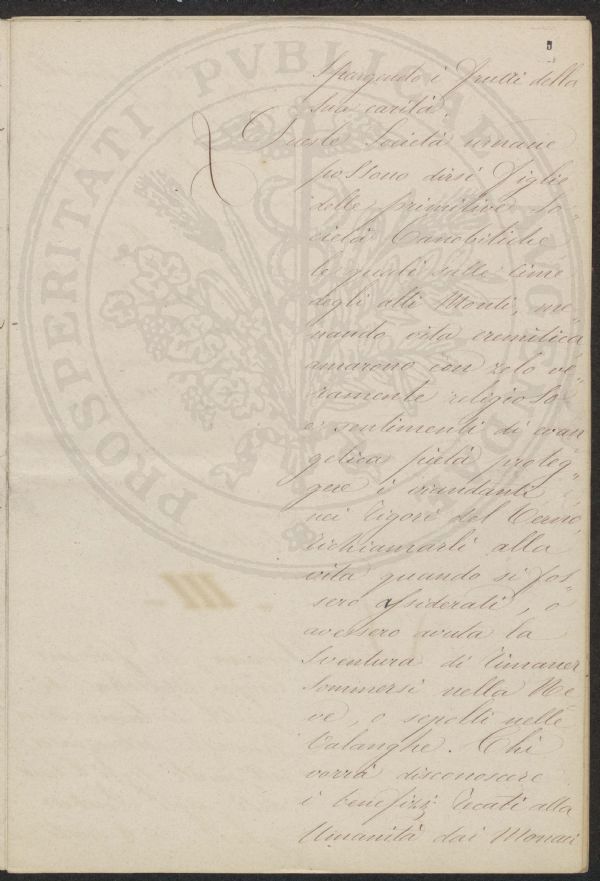 spargendo i frutti della
sua carità.
Queste Società umane
possono dirsi figlie
delle primitive So"
cietà Cenobitiche,
le quali sulle cime
degli alti Monti, me"
nando vita eremitica
amarono con zelo ve"
ramente religioso
e sentimenti di evan"
gelica pietà proteg"
gere i viandanti
nei rigori del Verno,
richiamarli alla
vita quando si fos"
sero assiderati, o
avessero avuta la
sventura di rimaner
sommersi nella Ne"
ve, o sepolti nelle
Valanghe. Chi
vorrà disconoscere
i benefizj recati alla
Umanità dai Monaci
PROSPERITATI PVBLICAE